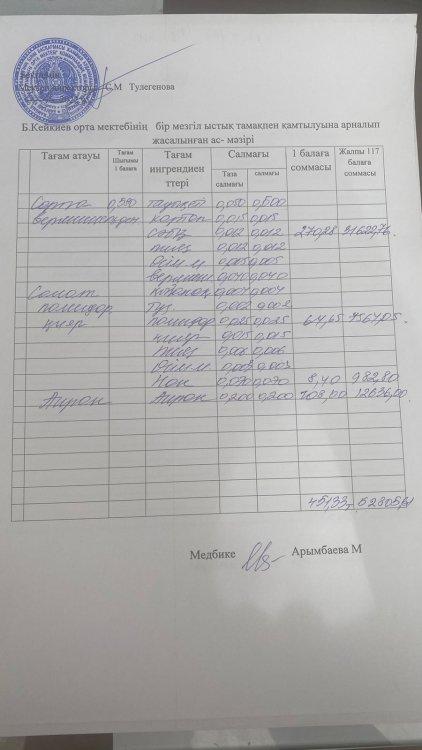 Бекітемін
Мектеп директоры С.М Тулегенова
Б.Кейкиев орта мектебінің бір мезгіл ыстық тамақпен қамтылуына арналып
жасалынған ас- мәзірі
Тағам атауы Тағам Шығымы 1 балаға Тағам ингрендиен ттері Салмағы 1 балаға соммасы Жалпы 117 балаға соммасы
Таза салмағы салмағы
Сорпа 0,500
вермишельден картоп 0,015 0,015
сәбіз 0,012 0,012 270,28 31622,76
пияз 0,012 0,012
Өсім м 0,005 0,005
вермиш 0,040 0,040
Салат 0,004 0,004
помидор Тұз 0,002 0,002
қияр помидор 0,025 0,025 64,65 7564,05
қияр 0,015 0,015
пияз 0,006 0,006
Өсім м 0,003 0,003
Нан 0,070 0,070 8,40 982,80
Айран Айран 0,200 0,200 108,00 12636,00
451,33 52805,61
Медбике Арымбаева М